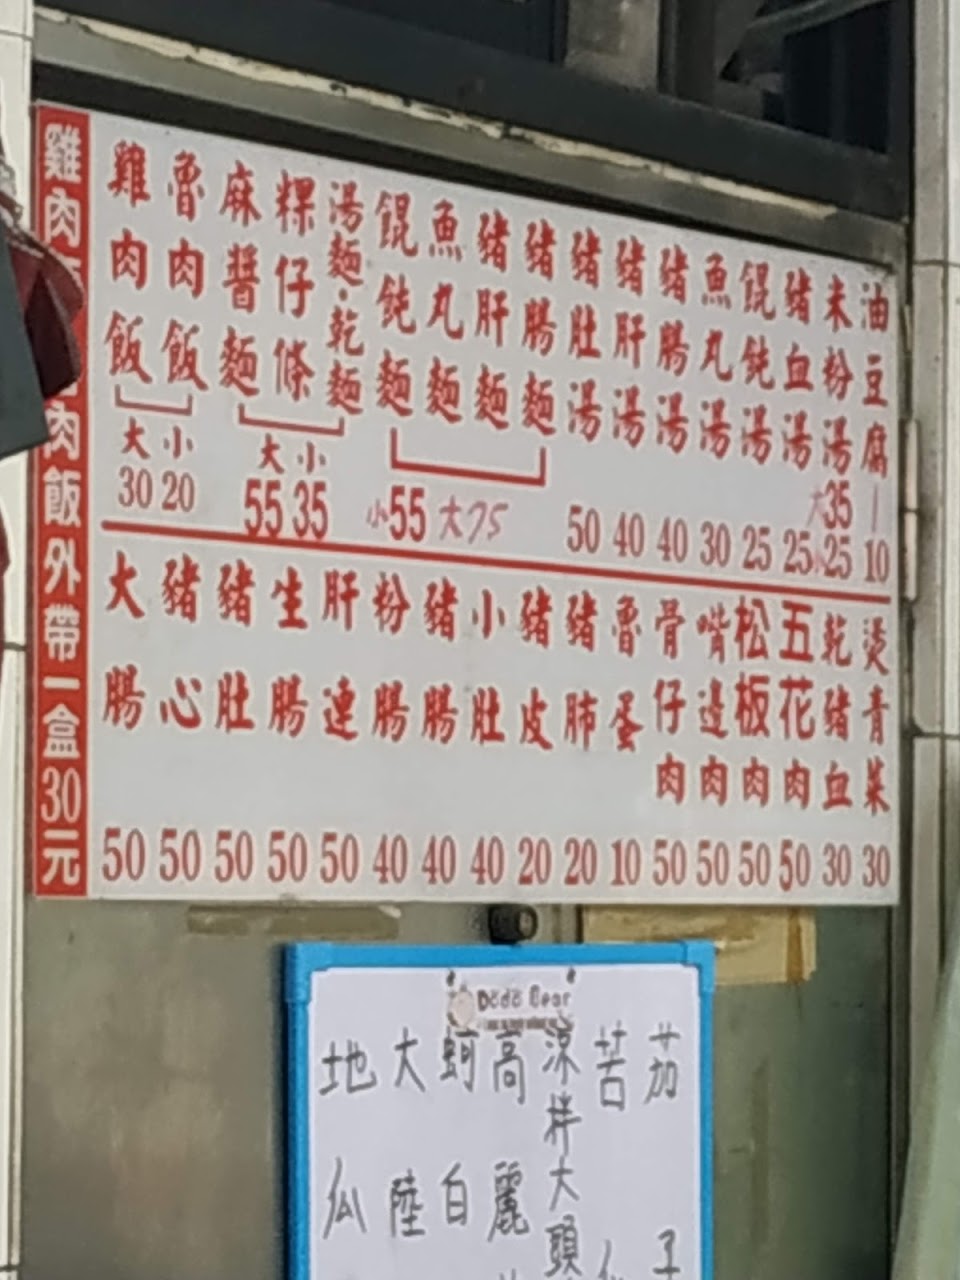 雞肉
肉飯外帶一盒30元
雞肉飯
魯肉飯
大30
小20
麻醬麵
粿仔條
湯麵·乾麵
大55
小35
餛飩麵
魚丸麵
豬肝麵
豬腸麵
小55 大75
豬肚湯 50
豬肝湯 40
豬腸湯 40
魚丸湯 30
餛飩湯 25
豬血湯 25
米粉湯 大35 小25
油豆腐 1 10
大腸 50
豬心 50
豬肚 50
生腸 50
肝連 50
粉腸 40
豬腸 40
小肚 40
豬皮 20
豬肺 20
魯蛋 10
骨仔肉 50
嘴邊肉 50
松板肉 50
五花肉 50
乾豬血 30
燙青菜 30
Dodo Bear
地瓜
大陸
蚵白
高麗
涼拌大頭
苦
茄子